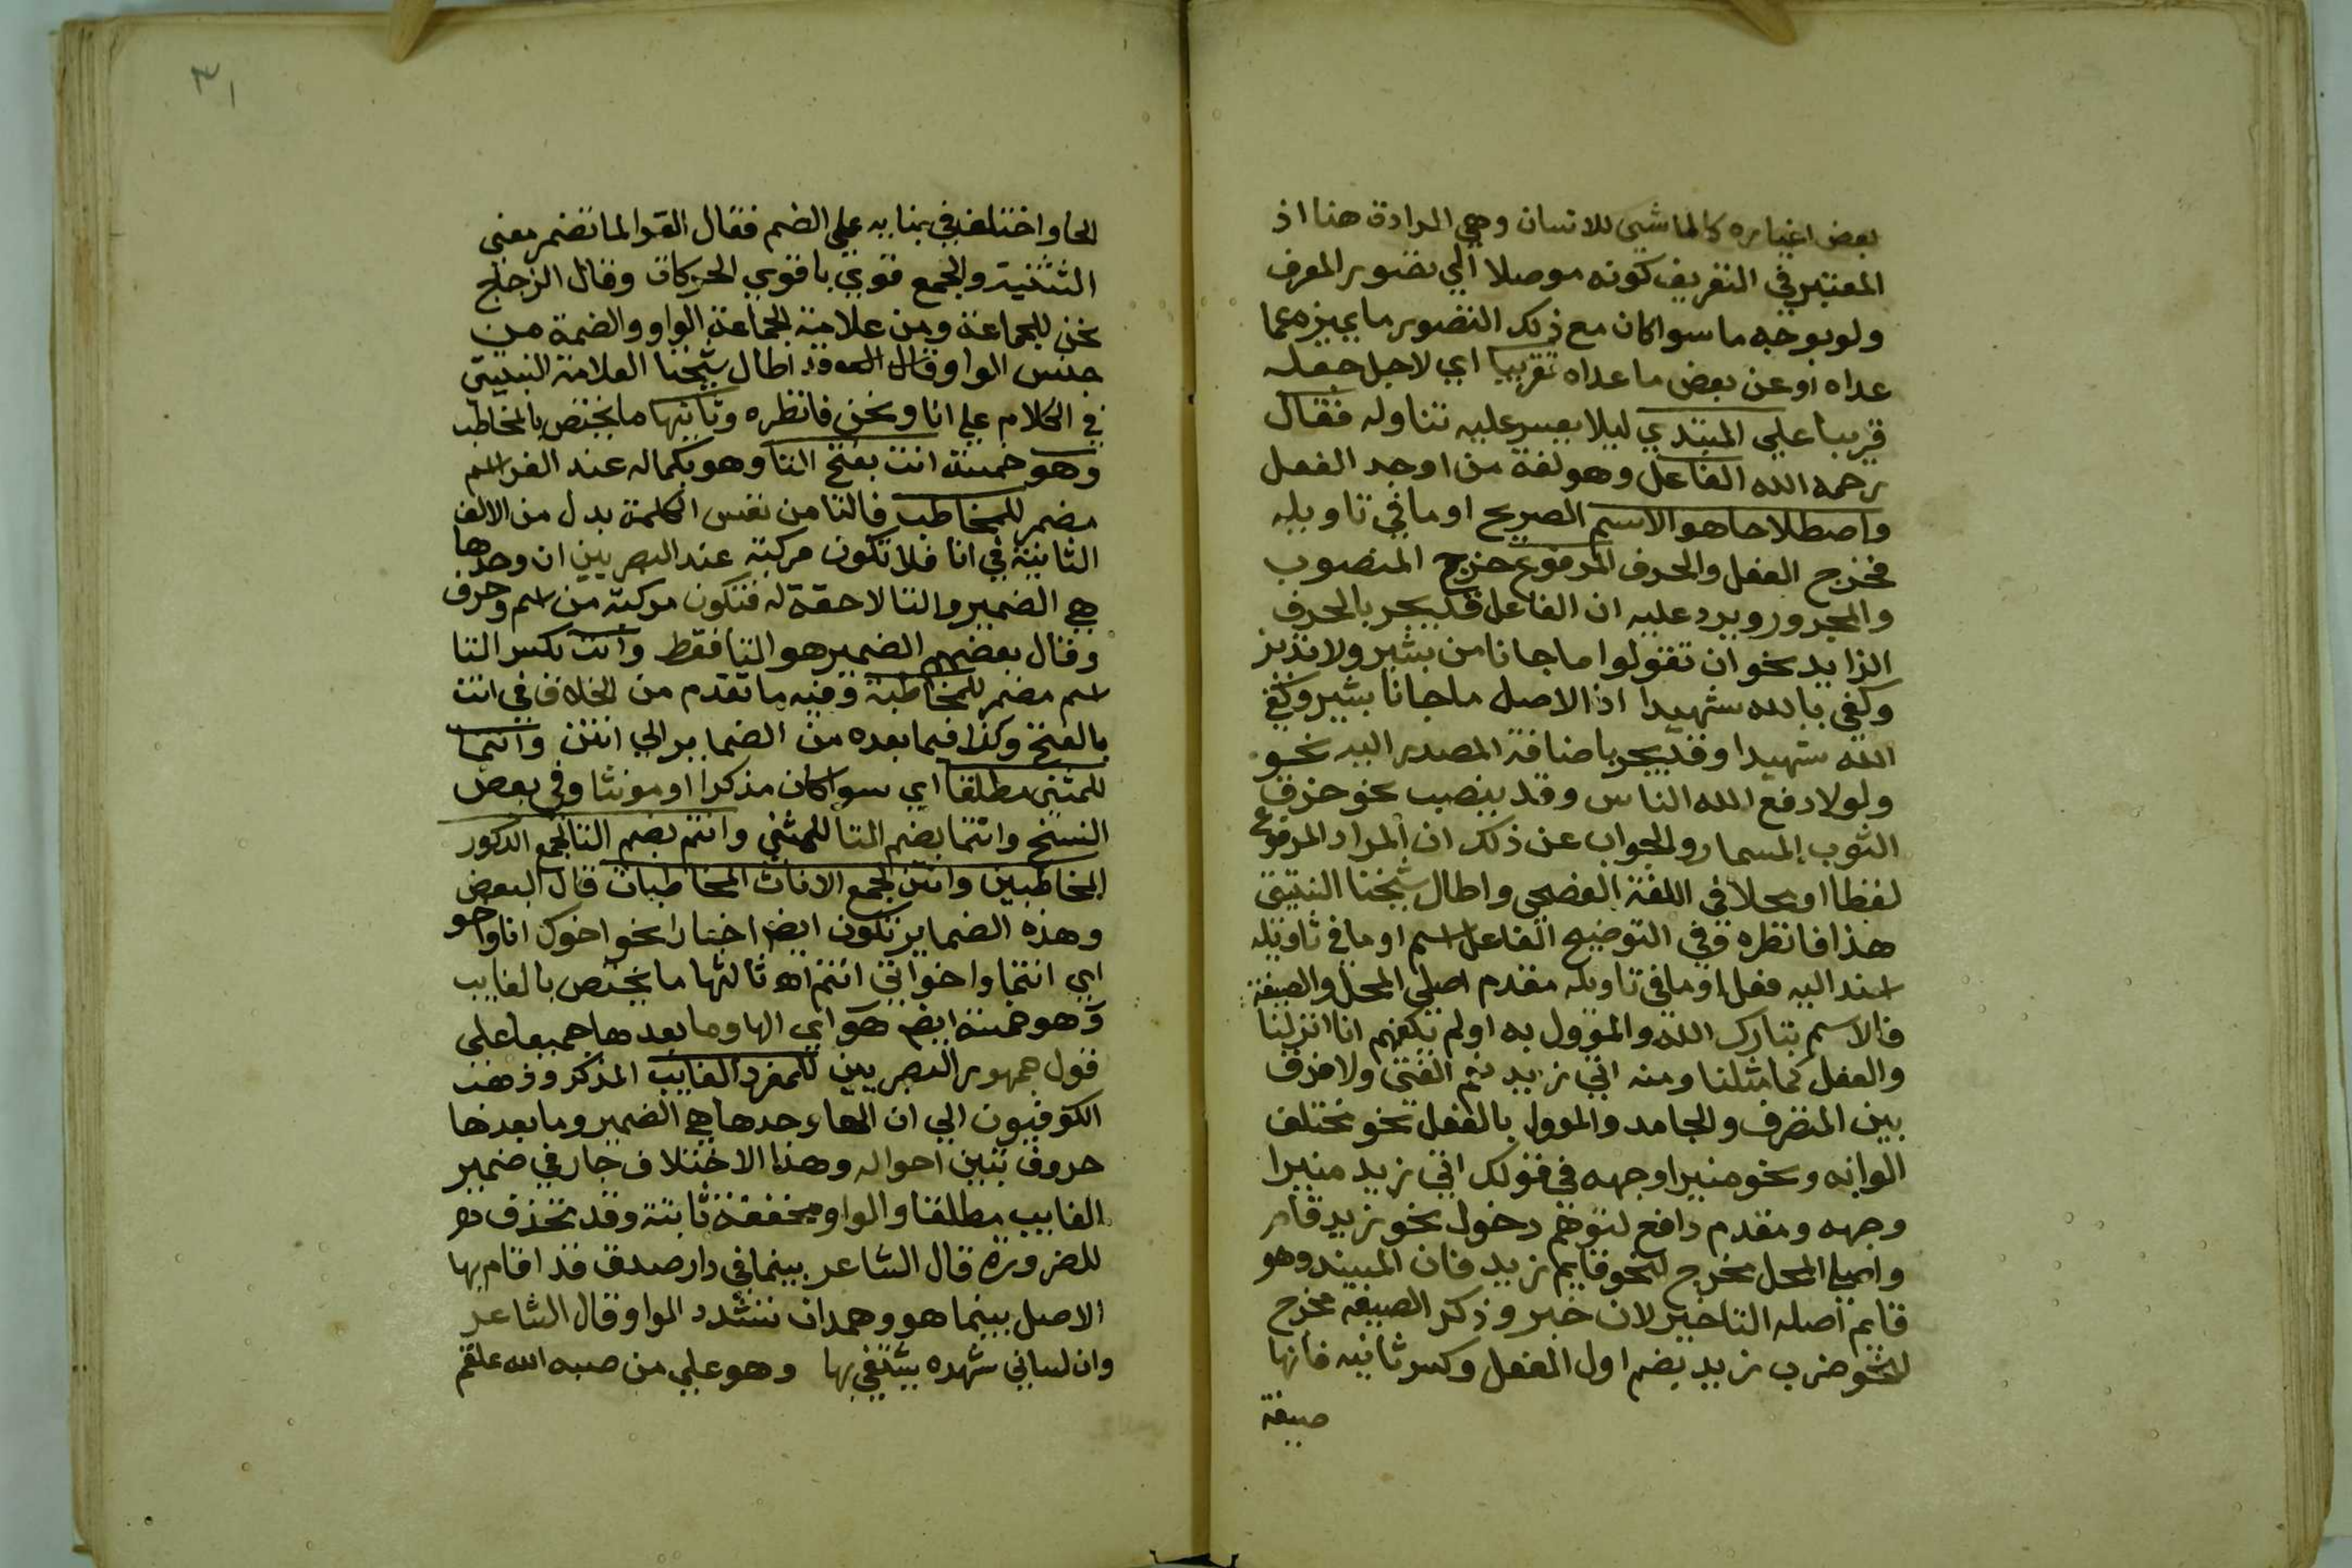 بعض اغياره كالماشي للانسان وهي المرادة هنا اذ
المعتبر في التعريف كونه موصلا الي تصوير المعرف
ولو بوجه ما سوا كان مع ذلك التصوير ما يميزه عما
عداه او عن بعض ما عداه تقريبا اي لاجل جعله
قريبا علي المبتدي ليلا يعسر عليه تناوله فقال
رحمه الله الفاعل وهو لغة من اوجد الفعل
واصطلاحا هو الاسم الصريح او ما في تاويله
فخرج الفعل والحرف المرفوع خرج المنصوب
والمجرور ويرد عليه ان الفاعل قد يجر بالحرف
الزايد نحو ان تقولوا ما جانا من بشير ولا نذير
وكفي بالله شهيدا اذ الاصل ما جانا بشير وكفي
الله شهيدا وقد يجر باضافة المصدر اليه نحو
ولولا دفع الله الناس وقد ينصب نحو خرق
الثوب المسمار والجواب عن ذلك ان المراد المرفوع
لفظا او محلا في اللغة الفصحي واطال شيخنا النبتيتي
هذا فانظره وفي التوضيح الفاعل اسم او ما في تاويله
اسند اليه فعل او ما في تاويله مقدم اصلي المحل والصيغة
فالاسم تبارك الله والمؤول به اولم يكفهم انا انزلنا
والفعل كما مثلنا ومنه اتي زيد نعم الفتي ولا فرق
بين المتصرف والجامد والموول بالفعل نحو مختلف
الوانه ونحو منيرا وجهه في قولك اتي زيد منيرا
وجهه ومقدم دافع لتوهم دخول نحو زيد قام
واصلي المحل مخرج لنحو قايم زيد فان المبتدا وهو
قايم اصله التاخير لان خبر وذكر الصيغة مخرج
لنحو ضرب زيد بضم اول الفعل وكسر ثانيه فانها
صيغة
٣١
الحا واختلف في بنايه علي الضم فقال الفرا لما تضمر معني
التثنية والجمع قوي باقوي الحركات وقال الزجاج
نحن للجماعة ومن علامة الجماعة الواو والضمة من
جنس الواو وقد اطال شيخنا العلامة النبتيتي
في الكلام علي انا ونحن فانظره وثانيها ما يختص بالمخاطب
وهو خمسة انت بفتح التا وهو بكماله عند الفرا اسم
مضمر للمخاطب فالتا من نفس الكلمة بدل من الالف
الثانية في انا فلا تكون مركبة عند البصريين ان وحدها
هي الضمير والتا لاحقة له فتكون مركبة من اسم وحرف
وقال بعضهم الضمير هو التا فقط وانت بكسر التا
اسم مضمر للمخاطبة وفيه ما تقدم من الخلاف في انت
بالفتح وكذا فيما بعده من الضماير الي انتن وانتما
للمثني مطلقا اي سوا كان مذكرا او مونثا وفي بعض
النسخ وانتما بضم التا للمثني وانتم بضم التا لجمع الذكور
المخاطبين وانتن لجمع الاناث المخاطبات قال البعض
وهذه الضماير تكون ايضا اخبارا نحو اخوك انا واخو
اي انتما واخواتي انتم اه ثالثها ما يختص بالغايب
وهو خمسة ايض هو اي الها وما بعدها جميعا علي
قول جمهور البصريين للمفرد الغايب المذكر وذهب
الكوفيون الي ان الهاء وحدها هي الضمير وما بعدها
حروف تبين احواله وهذا الاختلاف جار في ضمير
الغايب مطلقا والواو مخففة ثابتة وقد تحذف
للضرورة قال الشاعر بينما في دار صدق قد اقام بها
الاصل بينما هو وهمدان تشدد الواو قال الشاعر
وان لساني شهده يشتفي بها وهو علي من صبه الله علقم